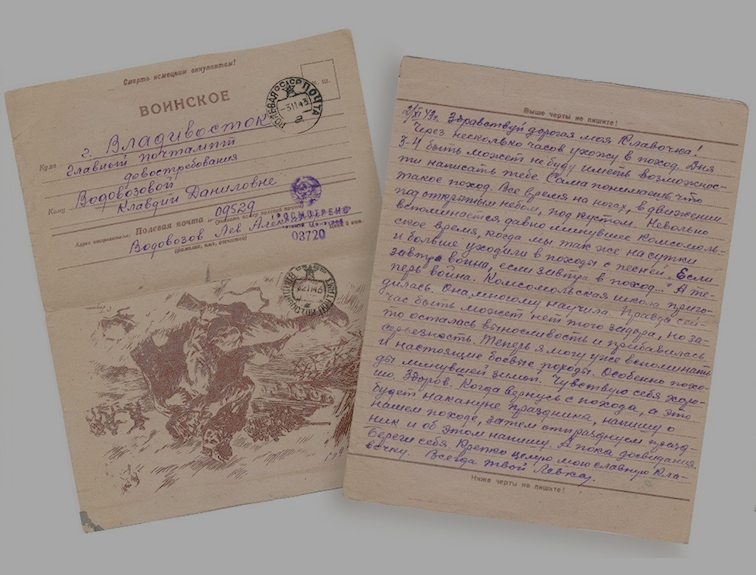 Смерть немецким оккупантам!
ВОИНСКОЕ
ПОЛЕВАЯ ПОЧТА
Куда г. Владивосток
Главный почтампт
довостребования
Кому Водовозовой
Клавдии Даниловне
Адрес отправителя: Полевая почта № 09529
Водовозов Лев
(фамилия, имя, отчество)
08720
Выше черты не пишите!
Здравствуй дорогая моя Клавочка!
Через несколько часов ухожу в поход. Дня
3-4 быть может не буду иметь возможнос-
ти написать тебе. Сама понимаешь что
такое поход. Все время на ногах, в движении
под открытым небом, под кустом. Невольно
вспоминается давно минувшее комсомоль-
ское время, когда мы так же на сутки
и больше уходили в походы с песней „Если
завтра война, если завтра в поход..." А те-
перь война. Комсомольская школа приго-
дилась. Она многому научила. Правда сей-
час быть может нет того задора, но за-
то осталась выносливость и прибавилась
серьезность. Теперь я могу уже вспоминать
и настоящие боевые походы. Особенно похо-
ды минувшей зимой. Чувствую себя хоро-
шо. Здоров. Когда вернусь с похода, а это
будет накануне праздника, напишу о
нашем походе, затем отпразднуем празд-
ник и об этом напишу. А пока досвидания.
Береги себя Крепко целую мою славную Кла-
вочку. Всегда твой Левка.
Ниже черты не пишите!